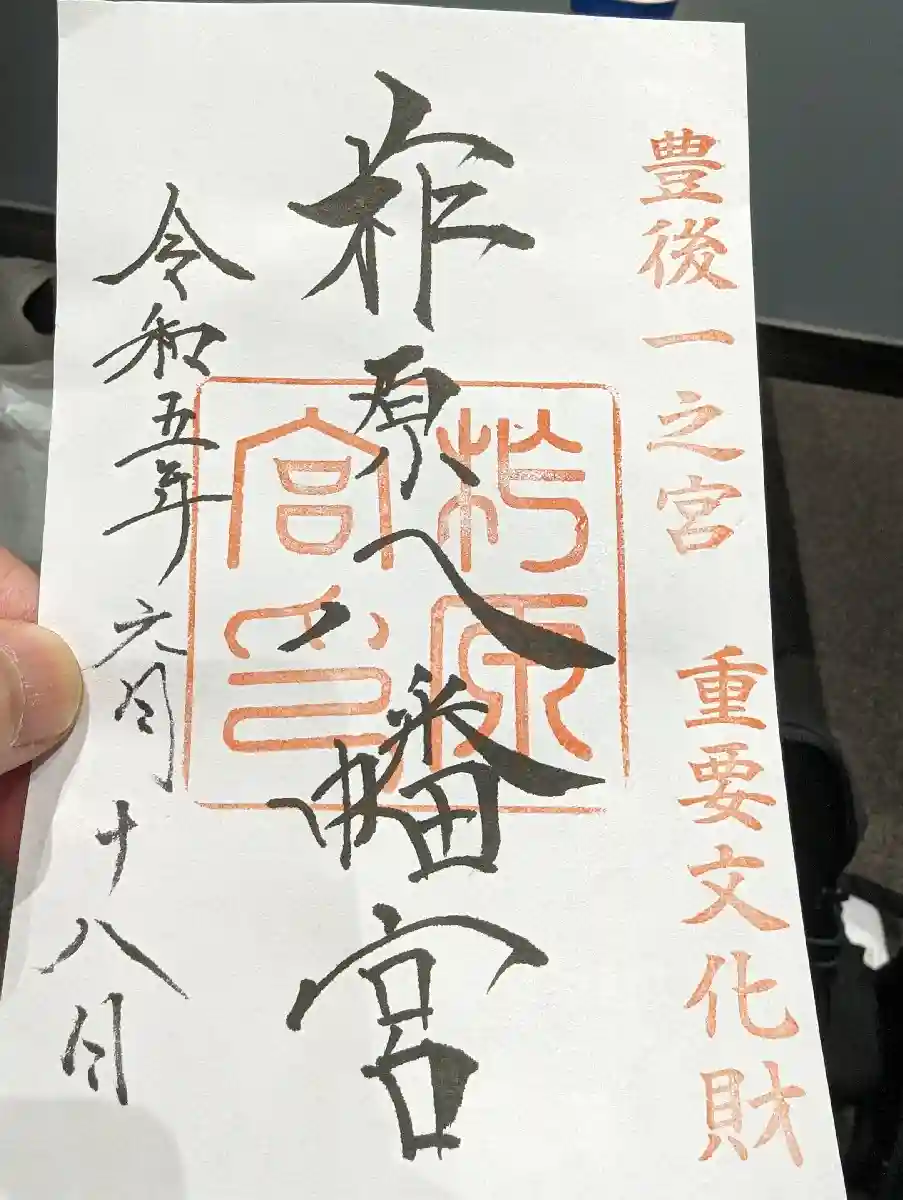 豊後一之宮 重要文化財
柞原八幡宮
柞原
宮印
令和五年六月十八日